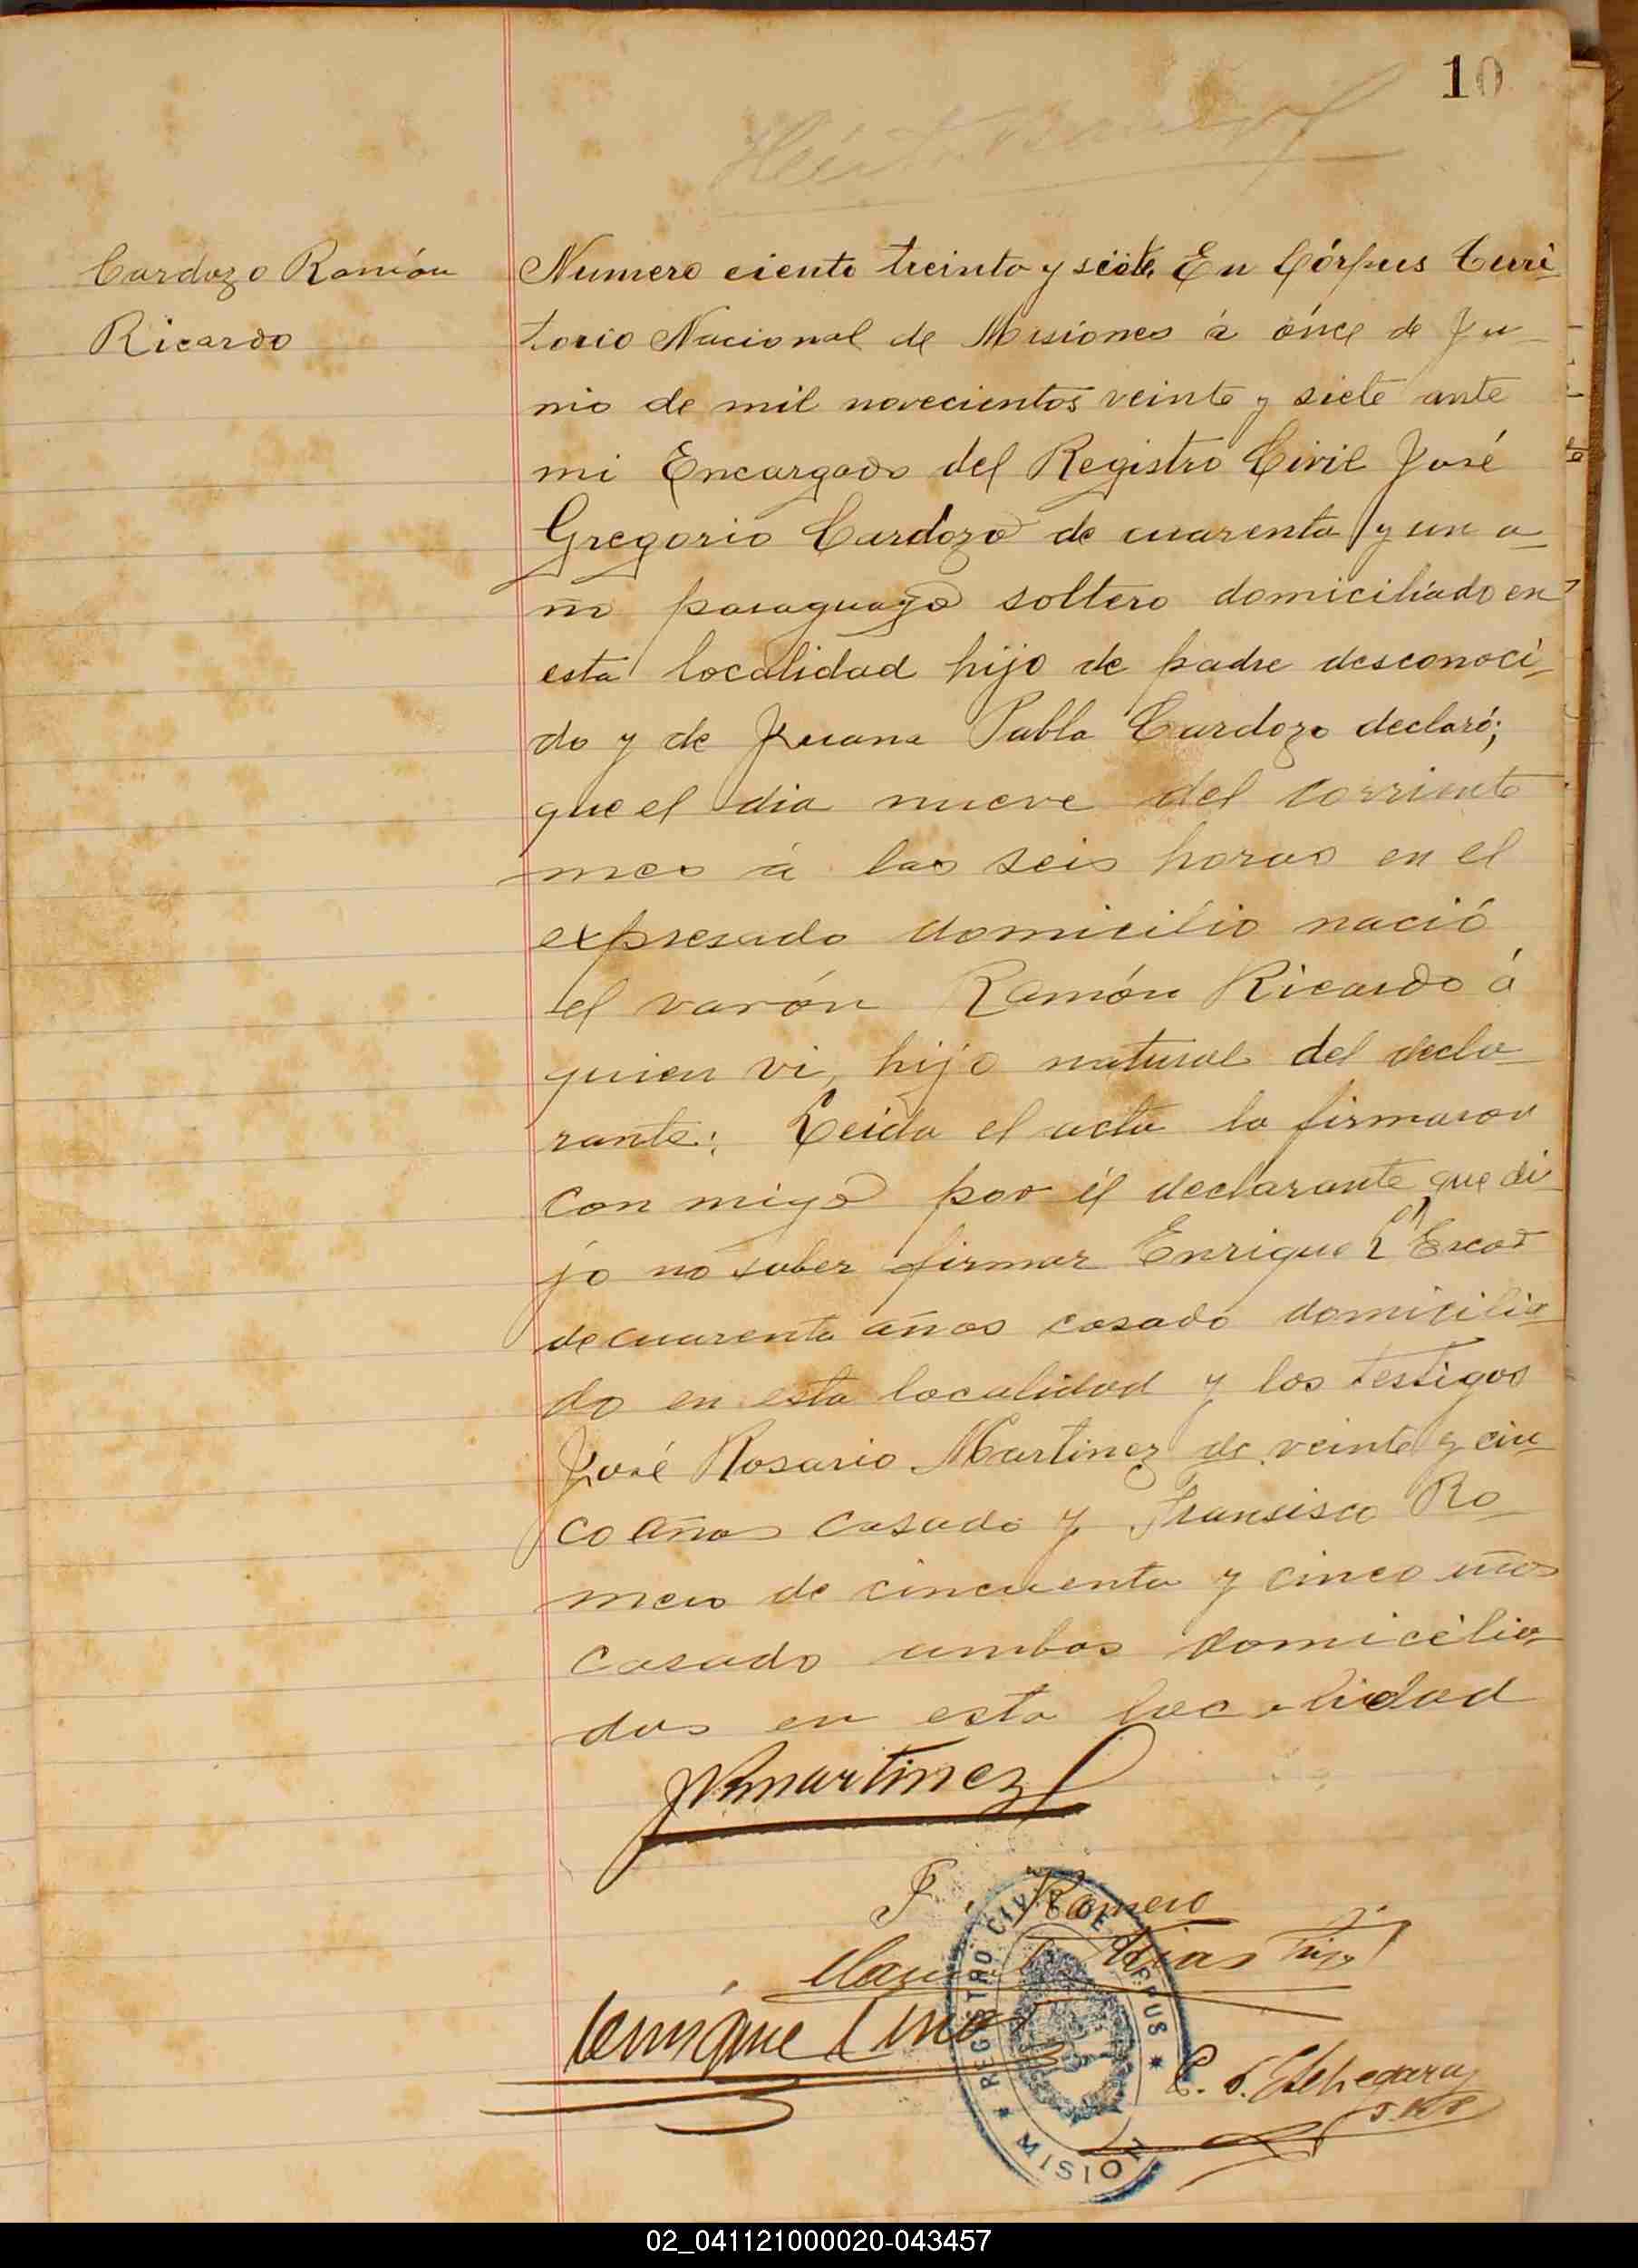 10
Cardozo Ramón
Ricardo
Numero ciento treinta y siete. En Córpus Terri-
torio Nacional de Misiones á ónce de Ju-
nio de mil novecientos veinte y siete ante
mi Encargado del Registro Civil José
Gregorio Cardozo de cuarenta y un a-
ño paraguayo soltero domiciliado en
esta localidad hijo de padre desconoci-
do y de Juana Pabla Cardozo declaró;
que el dia nueve del corriente
mes á las seis horas en el
expresado domicilio nació
el varón Ramón Ricardo á
quien vi, hijo natural del decla-
rante: Leida el acta la firmaron
con migo por él declarante que di-
jo no saber firmar Enrique
de cuarenta años casado domicilia-
do en esta localidad y los testigos
José Rosario Martinez de veinte y cin-
co años casado y Fransisco Ro-
mero de cincuenta y cinco años
casado ambos domicilia-
dos en esta localidad
JRMartinez
F. Romero
Enrique
REGISTRO CIVIL DE CORPUS
MISIONE
02_041121000020-043457